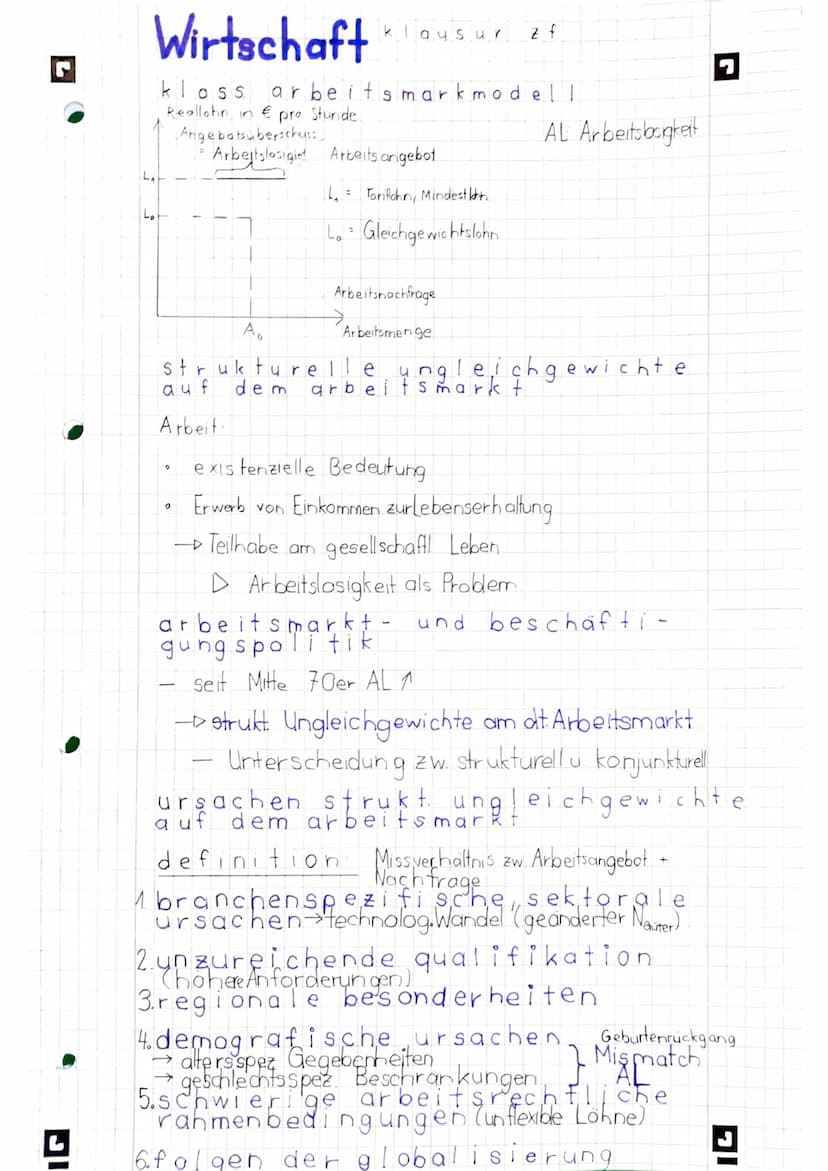 Wirtschaft klausur zf
klass. arbeitsmarkmodell
Reallohn in € pro Stunde
AL Arbeitslosigkeit
Angebotsüberschuss
= Arbeitslosigkeit
Arbeitsangebot
L₁
L₁ = Tariflohn, Mindestlohn
L₀
L₀ = Gleichgewichtslohn
Arbeitsnachfrage
A₀
Arbeitsmenge
strukturelle ungleichgewichte
auf dem arbeitsmarkt
Arbeit:
• existenzielle Bedeutung
• Erwerb von Einkommen zur Lebenserhaltung
→ Teilhabe am gesellschaftl. Leben
▷ Arbeitslosigkeit als Problem
arbeitsmarkt- und beschäfti-
gungspolitik
– seit Mitte 70er AL ↑
→ strukt. Ungleichgewichte am dt. Arbeitsmarkt
– Unterscheidung zw. strukturell u. konjunkturell
ursachen strukt. ungleichgewichte
auf dem arbeitsmarkt
definition Missverhältnis zw. Arbeitsangebot +
Nachfrage
1. branchenspezifische, sektorale
ursachen → technolog. Wandel (geänderter N Güter)
2. unzureichende qualifikation
(höhere Anforderungen)
3. regionale besonderheiten
4. demografische ursachen Geburtenrückgang
→ altersspez. Gegebenheiten
→ geschlechtsspez. Beschränkungen } Mismatch
AL
5. schwierige arbeitsrechtliche
rahmenbedingungen (unflexible Löhne)
6. folgen der globalisierung